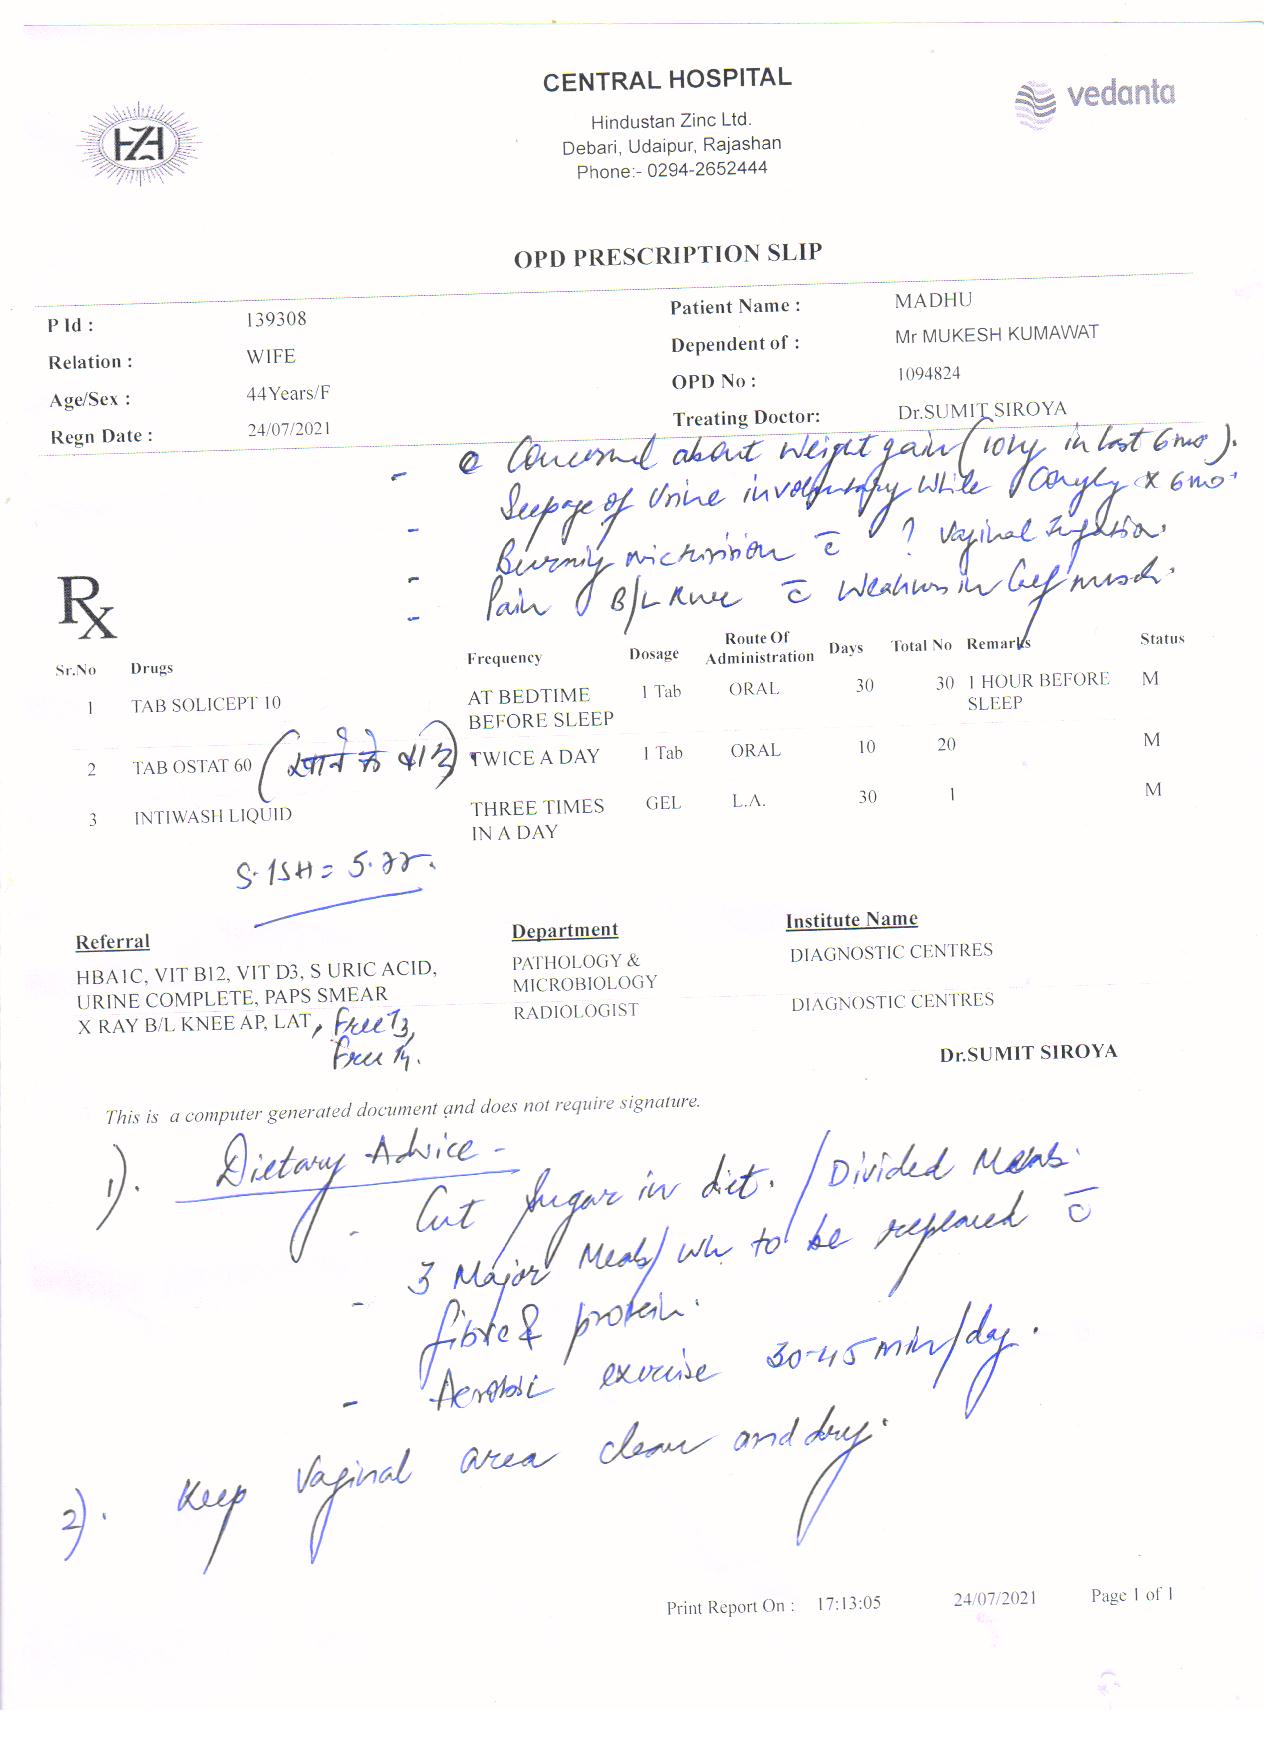 CENTRAL HOSPITAL
vedanta
HZL
Hindustan Zinc Ltd.
Debari, Udaipur, Rajashan
Phone:- 0294-2652444
OPD PRESCRIPTION SLIP
P Id : 139308 Patient Name : MADHU
Relation : WIFE Dependent of : Mr MUKESH KUMAWAT
Age/Sex : 44Years/F OPD No : 1094824
Regn Date : 24/07/2021 Treating Doctor: Dr.SUMIT SIROYA
- Concerned about weight gain (10kg in last 6mo).
- Seepage of Urine involuntary while Coughing x 6mo.
- Burning micturition c̄ ? Vaginal Infection.
- Pain B/L Knee c̄ Weakness in Calf muscle.
Rx
Sr.No Drugs Frequency Dosage Route Of Administration Days Total No Remarks Status
1 TAB SOLICEPT 10 AT BEDTIME BEFORE SLEEP 1 Tab ORAL 30 30 1 HOUR BEFORE SLEEP M
2 TAB OSTAT 60 (खाने के बाद) TWICE A DAY 1 Tab ORAL 10 20 M
3 INTIWASH LIQUID THREE TIMES IN A DAY GEL L.A. 30 1 M
S.TSH = 5.22.
Referral Department Institute Name
HBA1C, VIT B12, VIT D3, S URIC ACID, PATHOLOGY & DIAGNOSTIC CENTRES
URINE COMPLETE, PAPS SMEAR MICROBIOLOGY
X RAY B/L KNEE AP, LAT, Free T3, RADIOLOGIST DIAGNOSTIC CENTRES
Free T4.
Dr.SUMIT SIROYA
This is a computer generated document and does not require signature.
1). Dietary Advice -
- Cut Sugar in diet. / Divided Meals.
- 3 Major Meals / to be replaced c̄
fibre & protein.
- Aerobic exercise 30-45 min/day.
2). Keep Vaginal area clean and dry.
Print Report On : 17:13:05 24/07/2021 Page 1 of 1